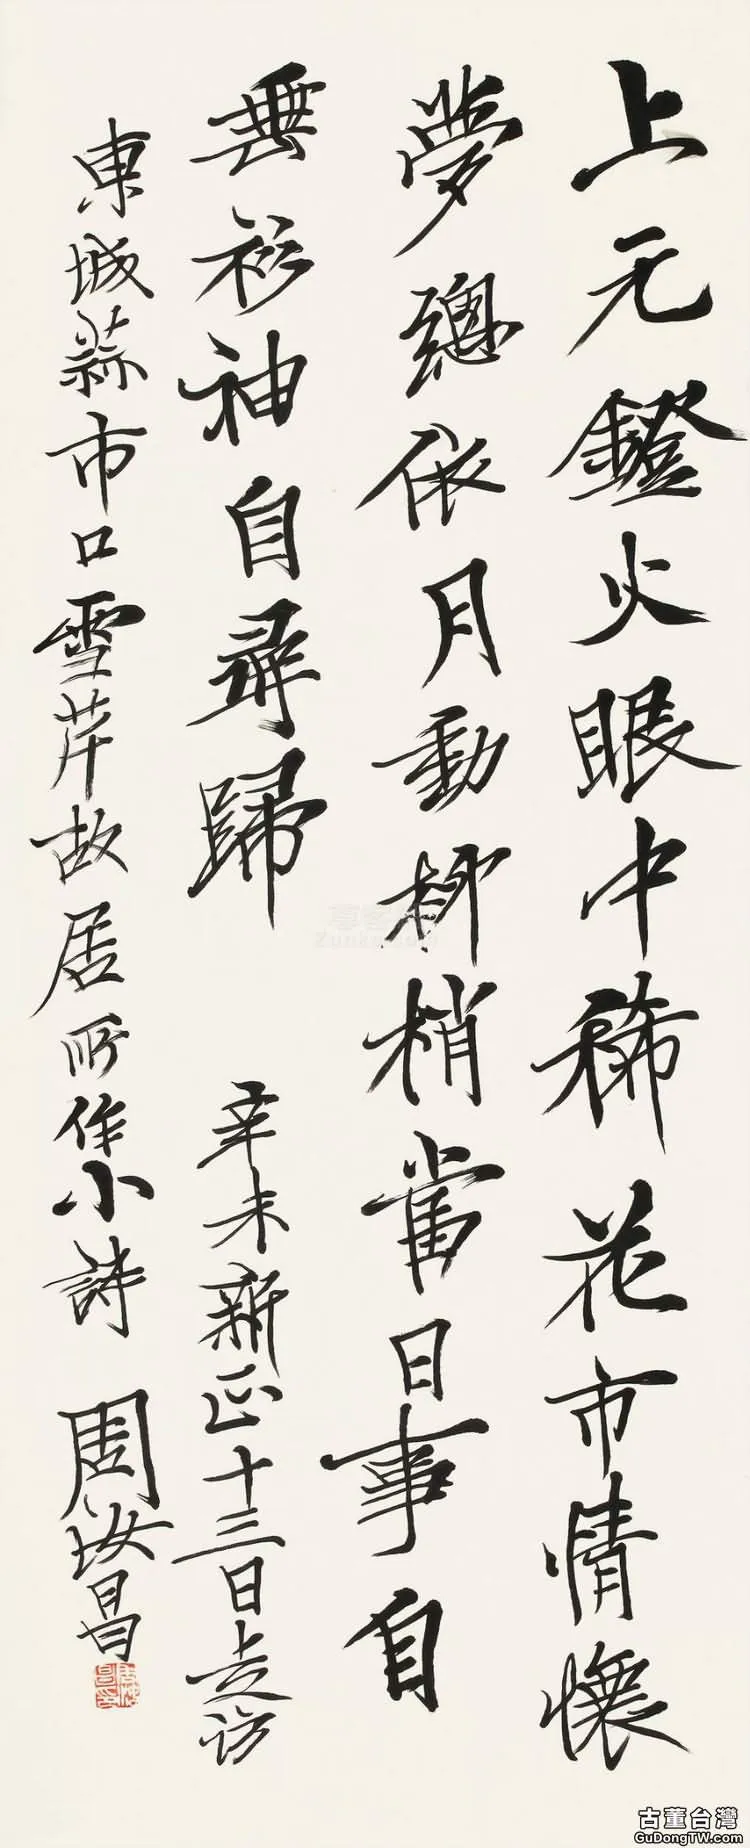 上元鐙火眼中稀花市情懷
夢總依月動柳梢當日事自
垂衫袖自尋歸 辛未新正十三日走訪
東城蒜市口雪芹故居所作小詩 周汝昌
古董台灣
GuDongTW.com